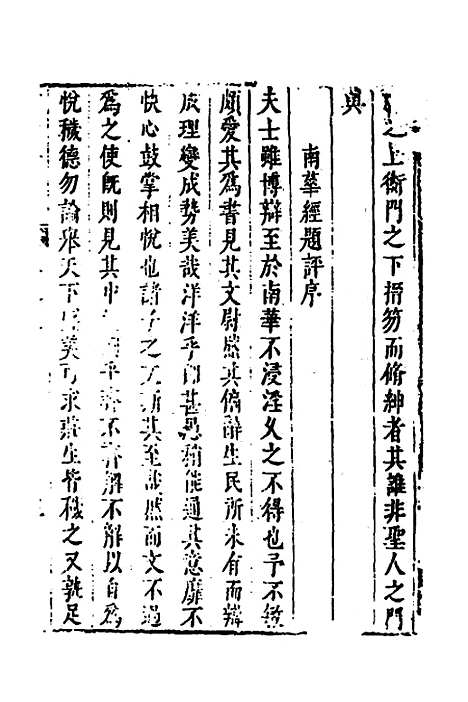 之上衡門之下搢笏而脩紳者其誰非聖人之門
與
南華經題評序
夫士雖博辯至於南華不浸淫久之不得也予不敏
頗愛其為書見其文尉然其脩辭生民所未有而辯
成理變成勢美哉洋洋乎門甚愚稍能通其意靡不
快心鼓掌相悅也諸子之文斯其至談然而文不過
為之使既則見其中 乎 不齊解不解以自為
悅穢德勿論舉天下 美可求 生皆穢之又孰足